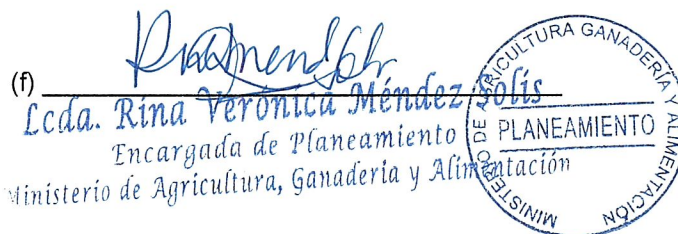 (f)
Lcda. Rina Verónica Méndez Solís
Encargada de Planeamiento
Ministerio de Agricultura, Ganaderia y Alimentación
MINISTERIO DE AGRICULTURA GANADERÍA Y ALIMENTACIÓN
PLANEAMIENTO